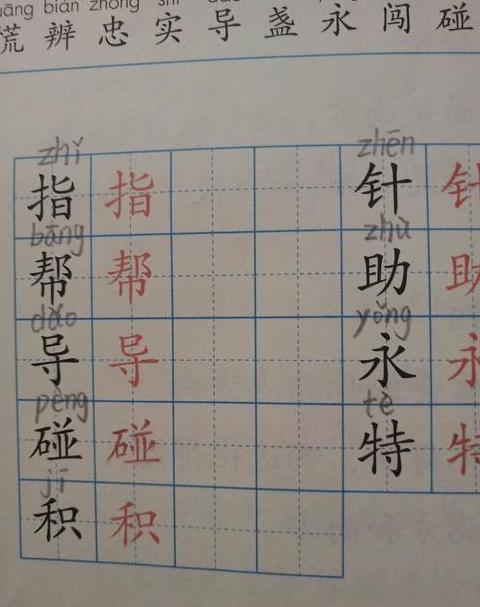 uāng biàn zhōng shí
慌 辨 忠 实 导 盏 永 闯 碰
zhǐ zhēn
指 指 针 针
bāng zhù
帮 帮 助 助
dǎo yǒng
导 导 永 永
pèng tè
碰 碰 特 特
jī
积 积